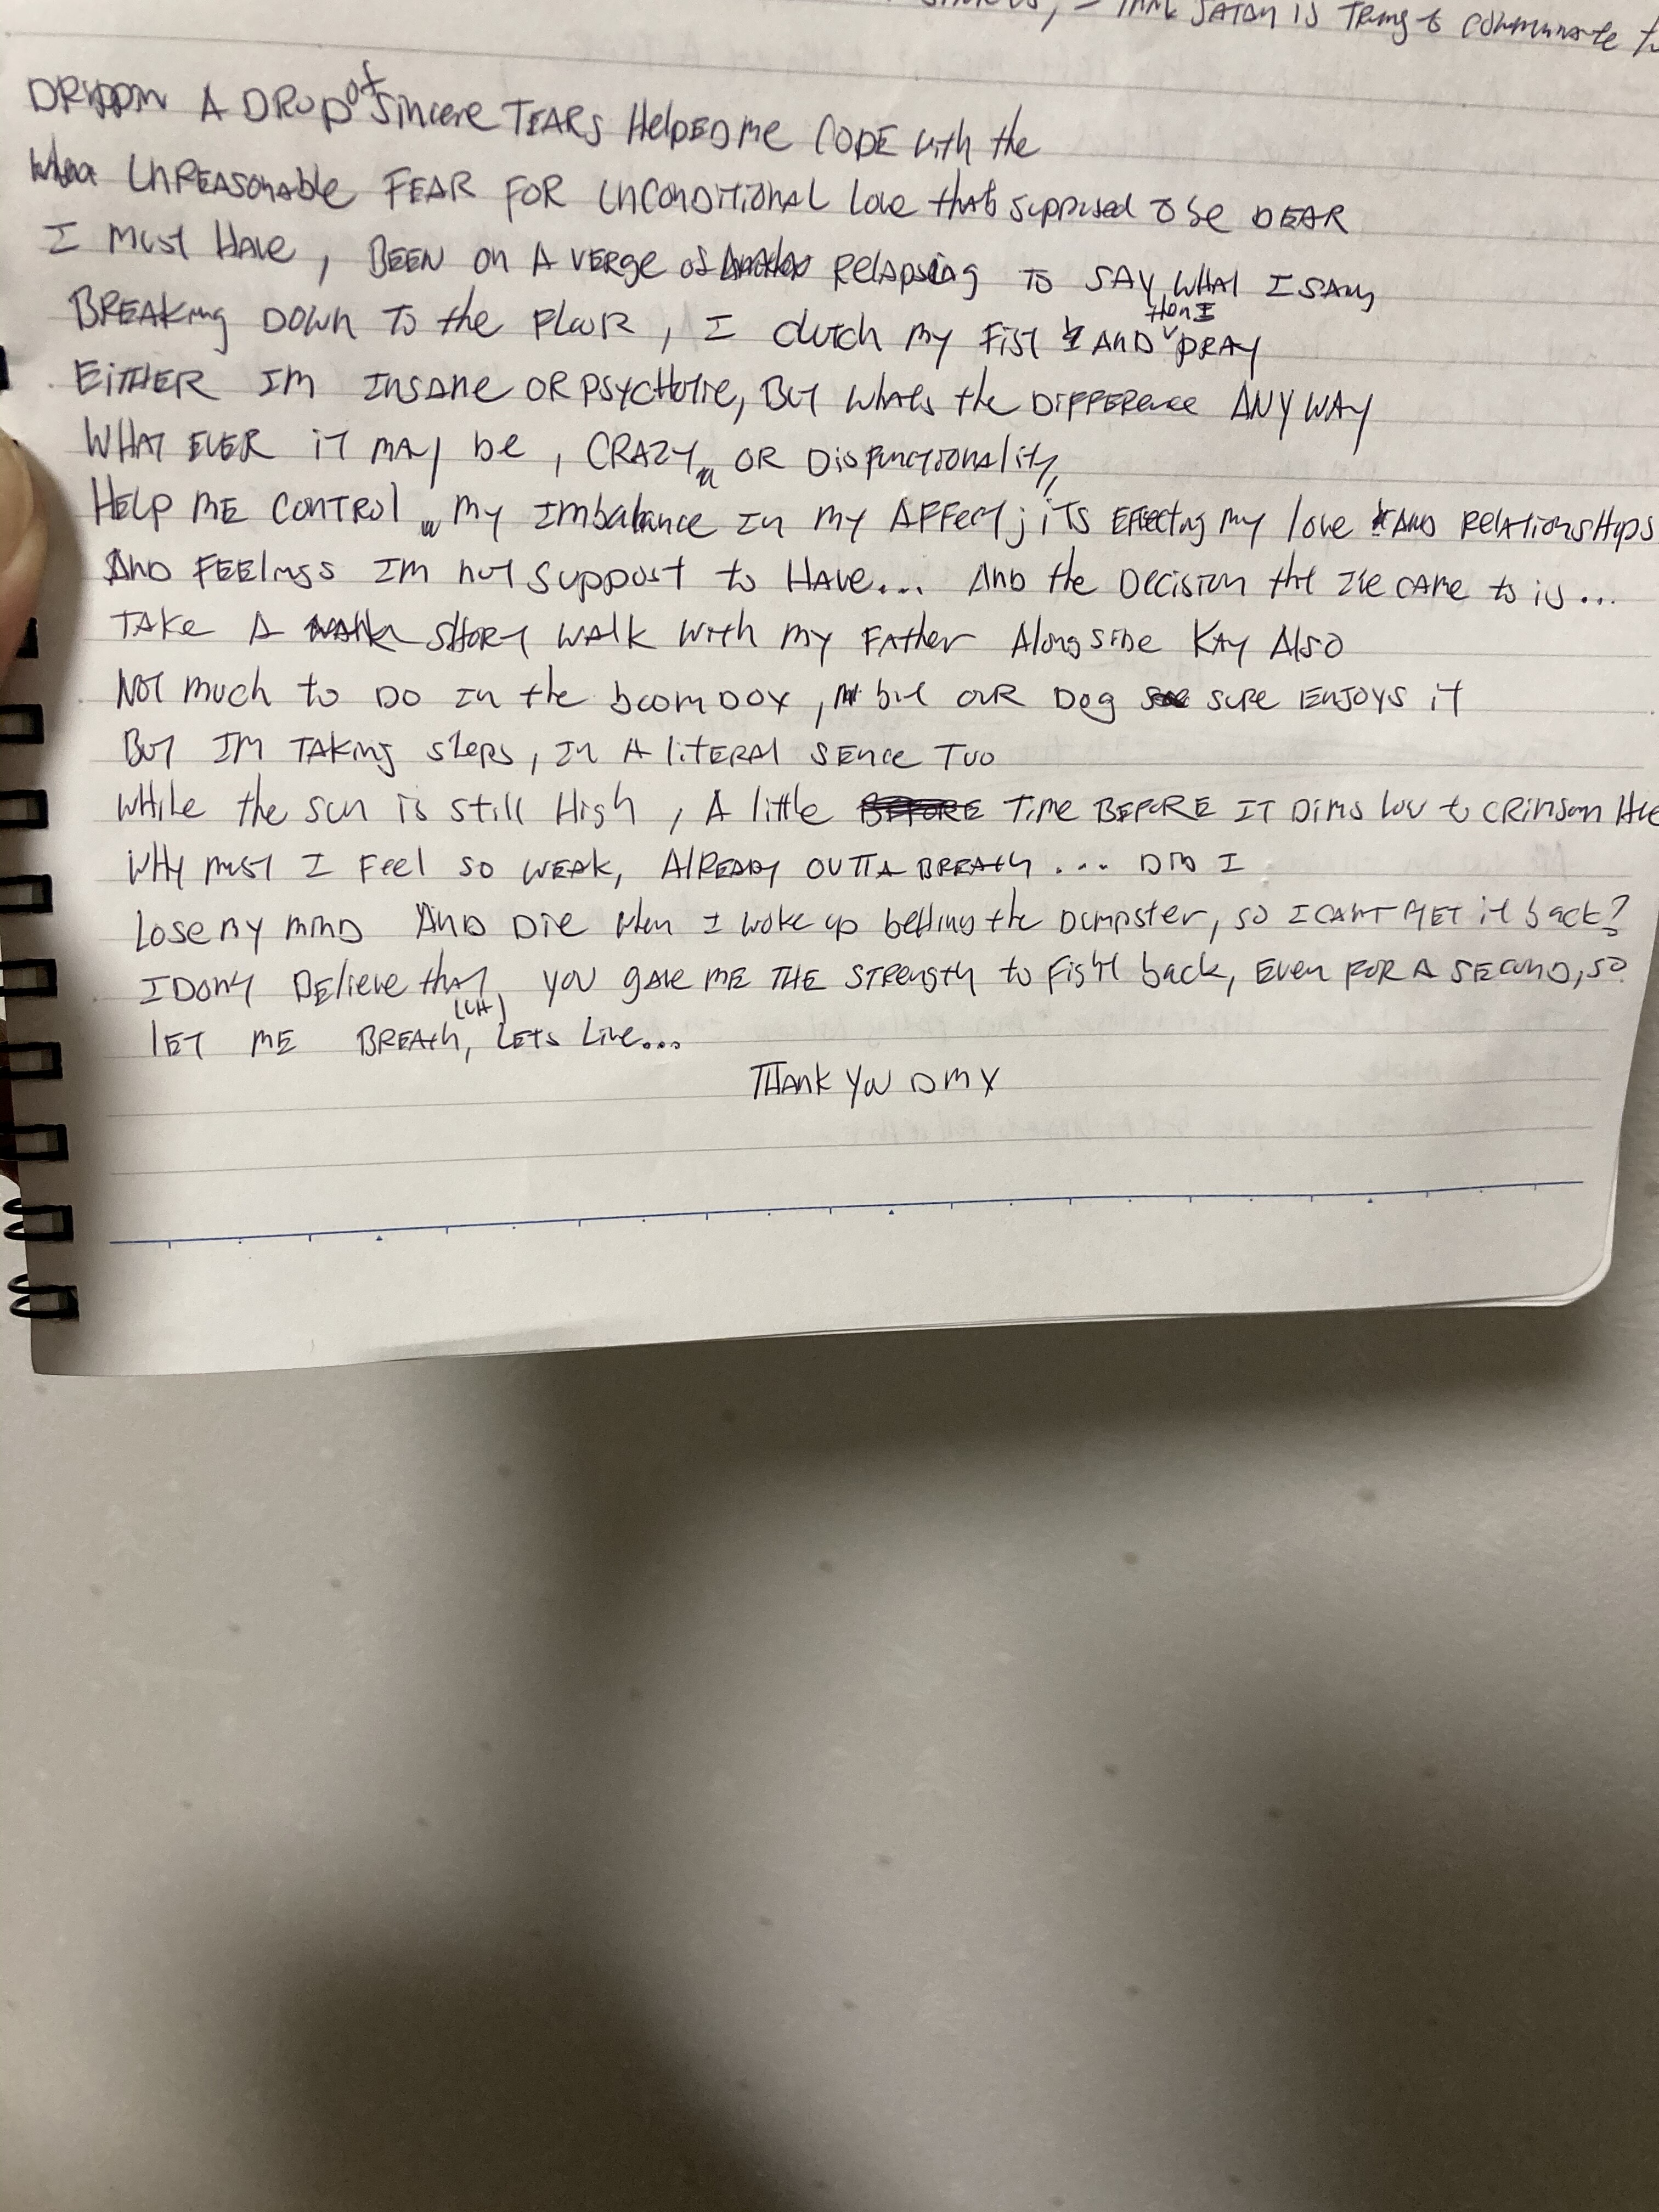 I think Satan is tring to communicate
Drippin A Drop of Sincere TEARS HelpED me CODE with the
UnREASonable FEAR FOR UnCONDITIOnal Love thats supposed to be DEAR
I Must Have, BEEN on A VERge of Relapsing TO SAY WHAT I SAW
BREAKing DOWN To the FlooR, I clutch my FisT AND then I PRAY
EiTHER Im InsAne OR PSYCHOTIC, BUT WhATs the DIFFERence ANYWAY
WHAT EVER iT MAy be, CRAZY OR DisFuncTIOnAliTy,
HELP ME CONTROL my ImbaLance In my AFFecT; iTs EFFecting my love AND RelATionsHips
AnD FEELings Im noT Suppost to HAve... And the Decision tht I've CAme to is...
TAke A SHORT WAlk WiTH my FATHer AlongsiDe KAy Also
NoT much to Do In the boomDox, but OUR Dog sure EnJOYS iT
BuT Im TAking sTeps, In A liTERAl SEnce Too
WHile the sun is sTill High, A little Time BEFORE IT Dims low to CRimson Hue
WHy musT I Feel so WEAK, AlREADy OuTTA BREATh.... DiD I
Lose my minD AnD Die when I woke up behing the Dumpster, so I CAnT GET iT back?
I DOnT Believe thAT, you gave ME THE STRENgTH to FigHT back, EVEn FOR A SECOnD, so
lET ME BREAth, (UH) lETs Live...
THAnk You DMX